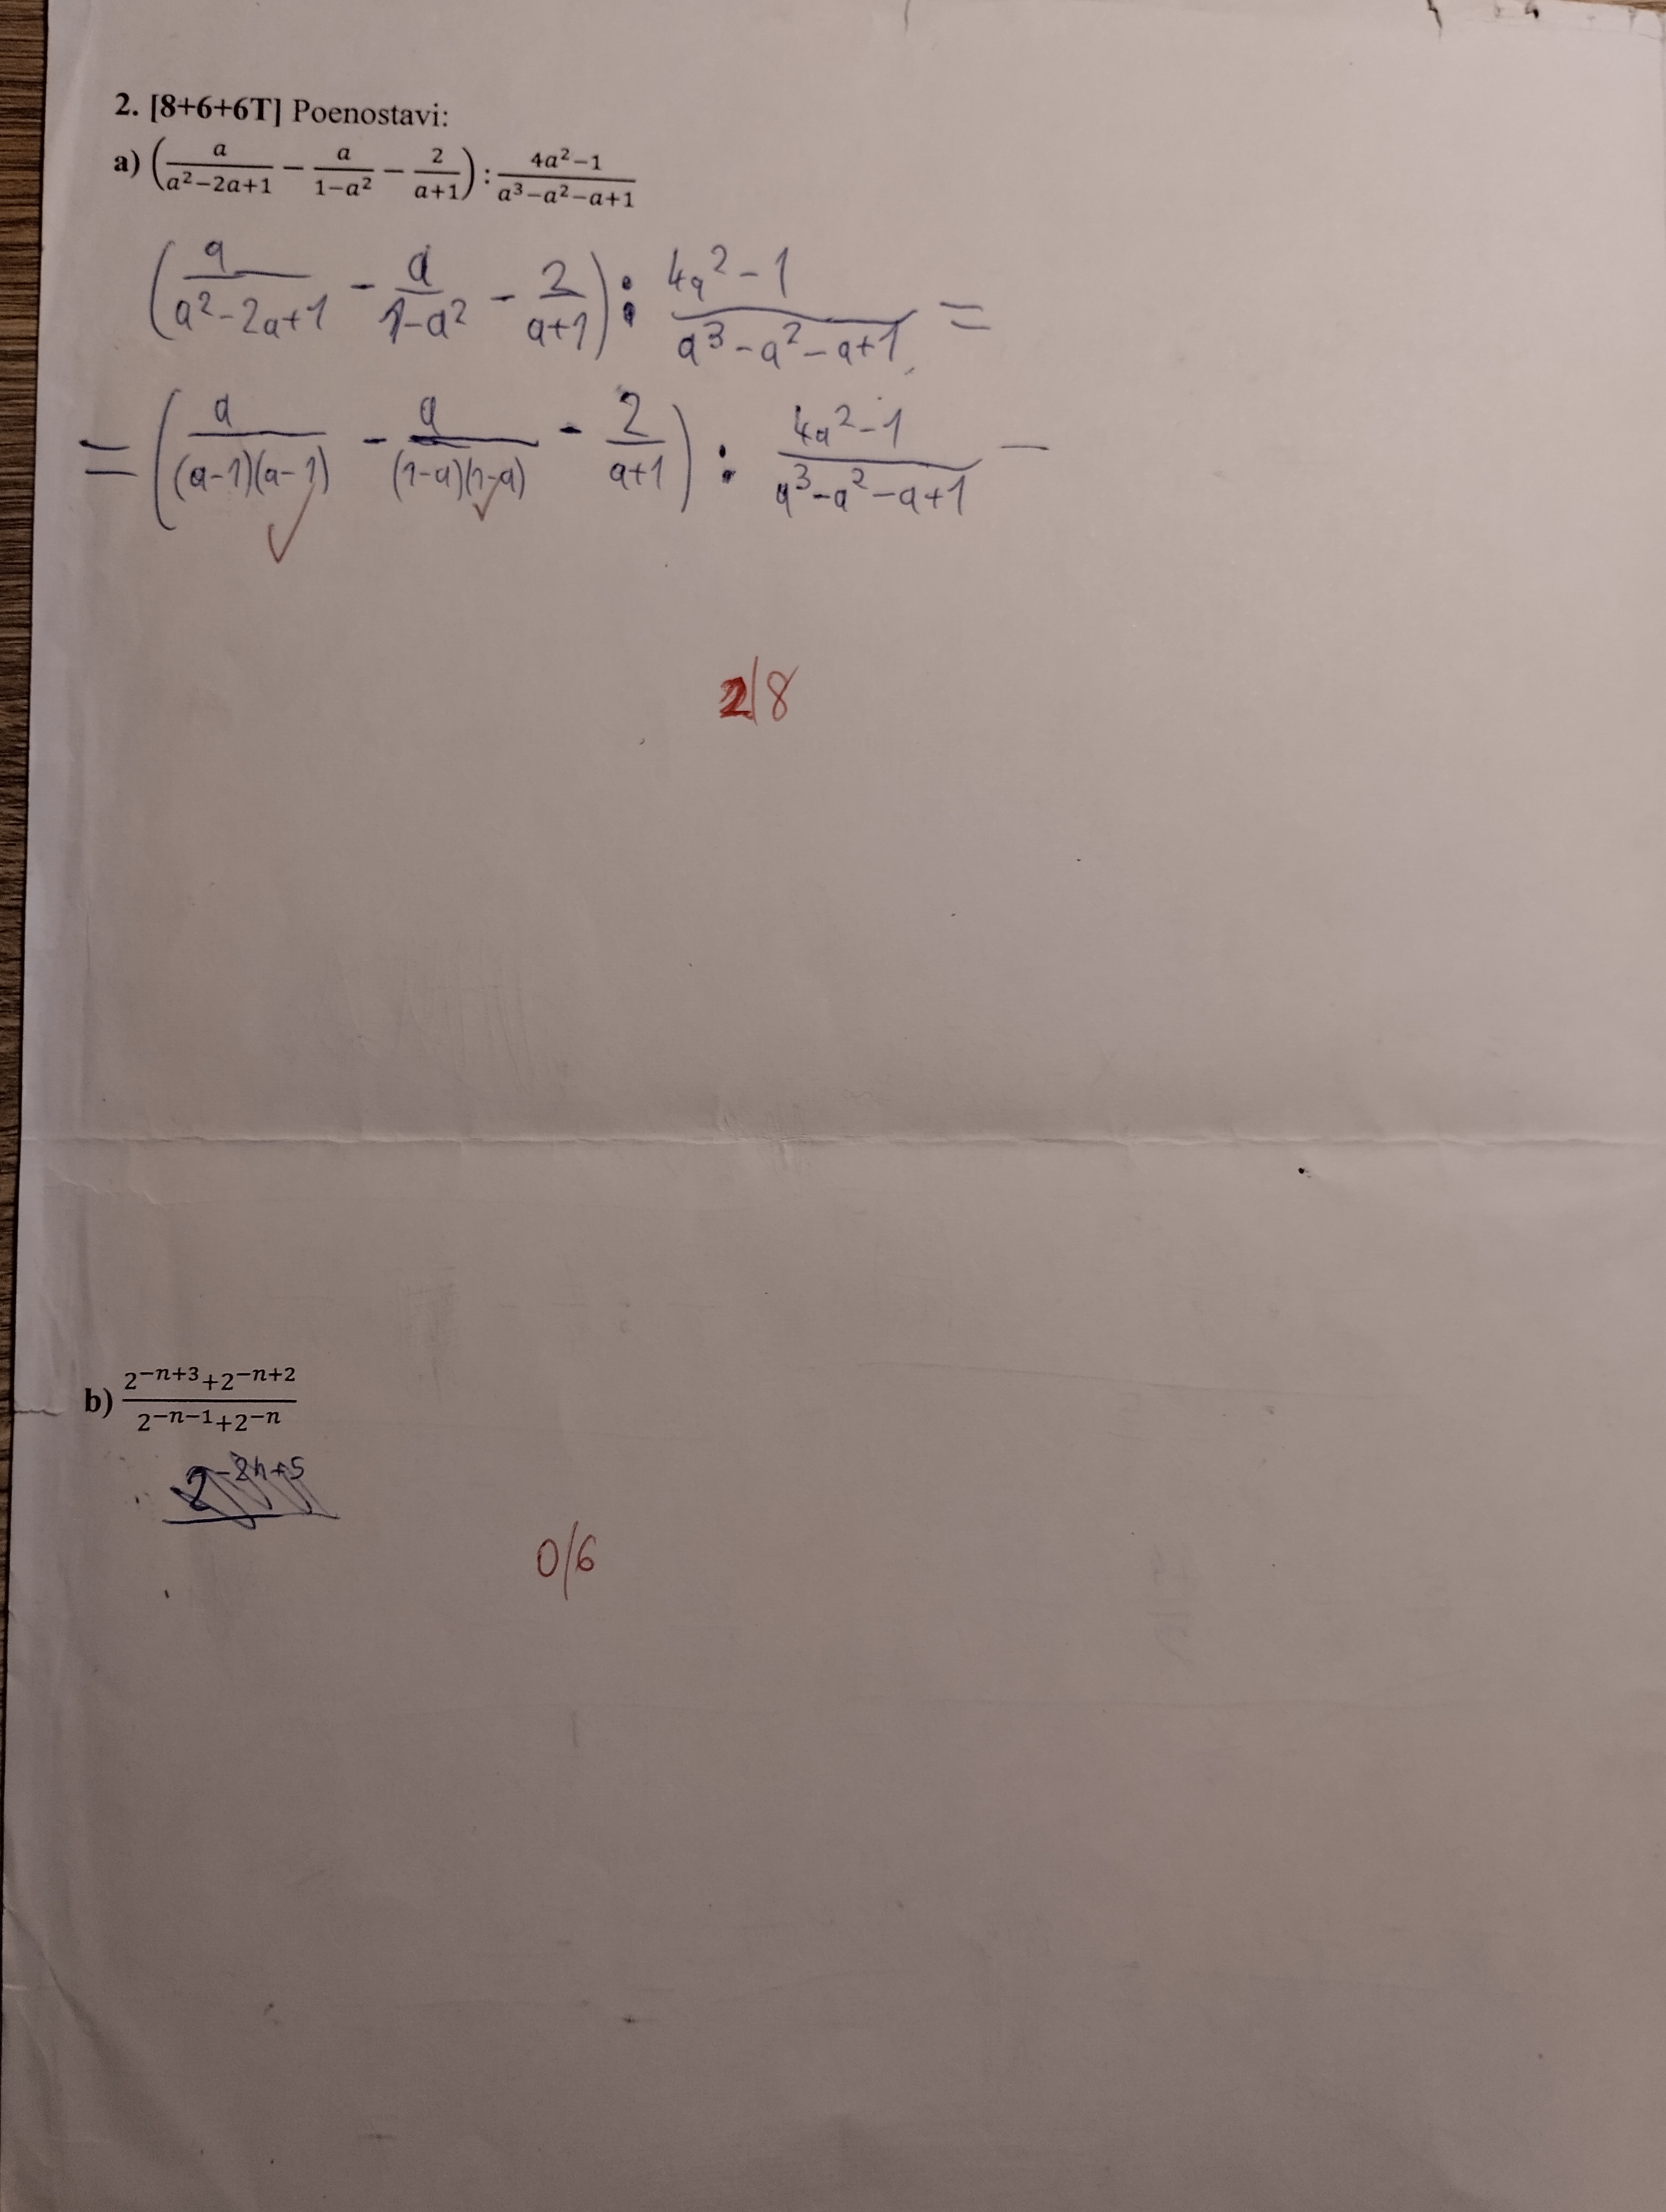 2. [8+6+6T] Poenostavi:
a) (a/(a²−2a+1) − a/(1−a²) − 2/(a+1)) : (4a²−1)/(a³−a²−a+1)
(a/(a²-2a+1) - a/(1-a²) - 2/(a+1)) : (4a²-1)/(a³-a²-a+1) =
= (a/((a-1)(a-1)) - a/((1-a)(1-a)) - 2/(a+1)) : (4a²-1)/(a³-a²-a+1) —
2/8
b) (2⁻ⁿ⁺³+2⁻ⁿ⁺²)/(2⁻ⁿ⁻¹+2⁻ⁿ)
2⁻²ⁿ⁺⁵
0/6